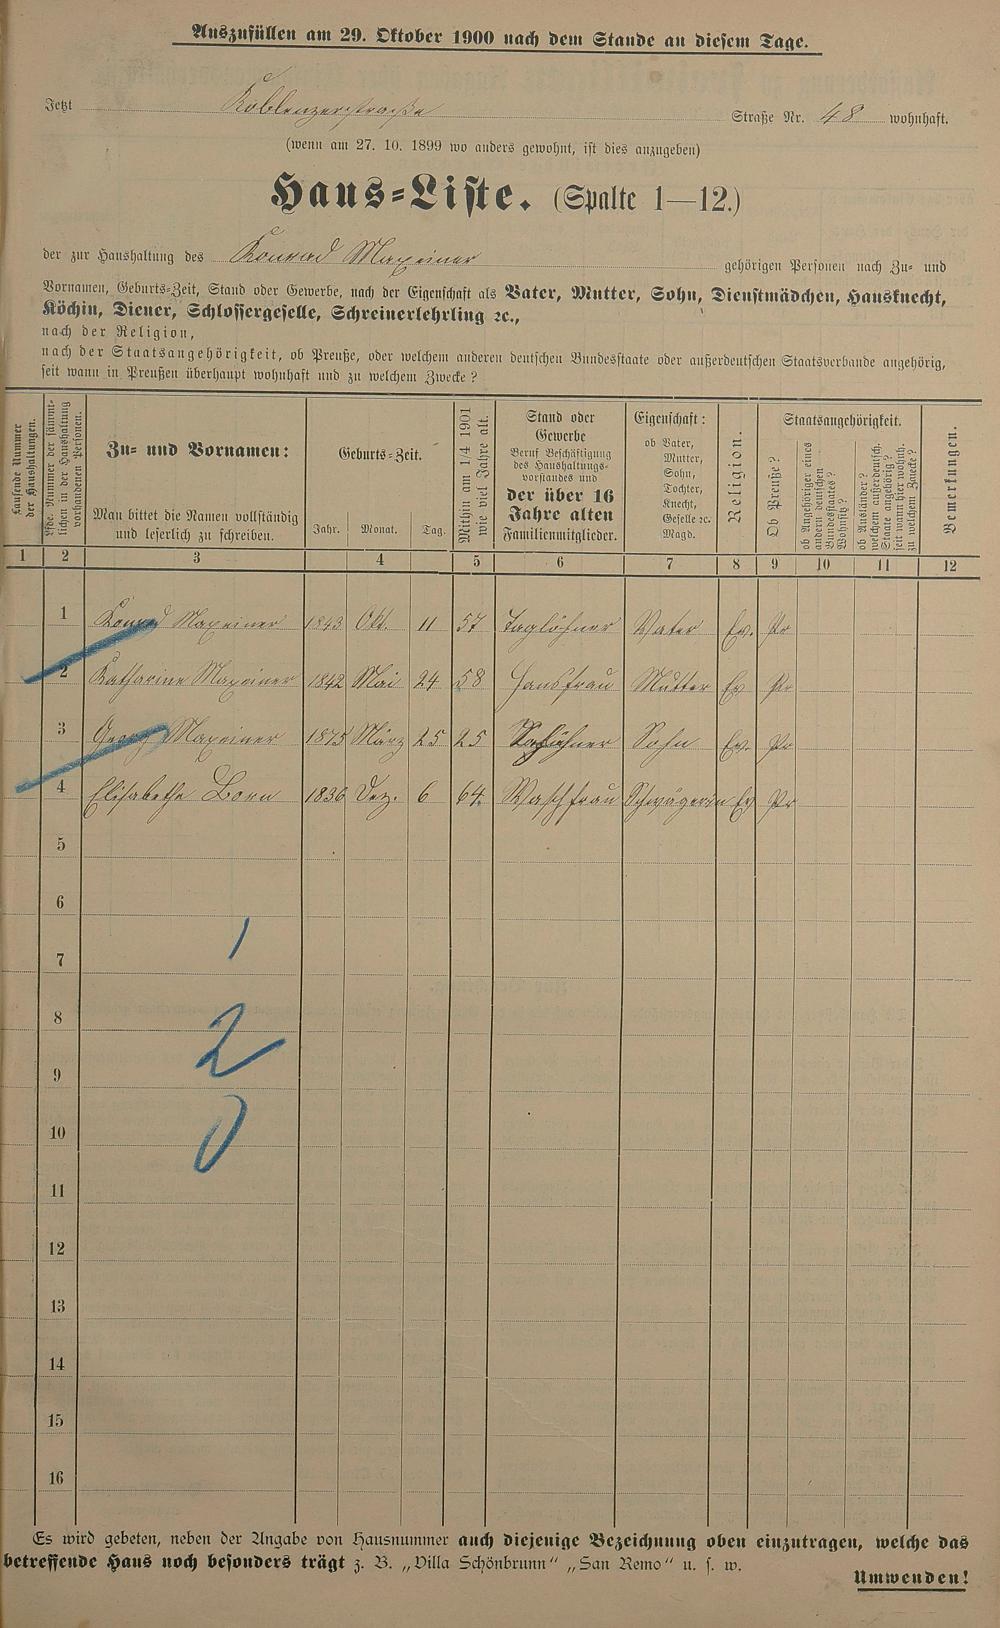 Auszufüllen am 29. Oktober 1900 nach dem Stande an diesem Tage.
Jetzt Koblenzerstraße Straße Nr. 48 wohnhaft.
(wenn am 27. 10. 1899 wo anders gewohnt, ist dies anzugeben)
Haus=Liste. (Spalte 1—12.)
der zur Haushaltung des Konrad Maxeiner gehörigen Personen nach Zu= und
Vornamen, Geburts=Zeit, Stand oder Gewerbe, nach der Eigenschaft als Vater, Mutter, Sohn, Dienstmädchen, Hausknecht,
Köchin, Diener, Schlossergeselle, Schreinerlehrling ꝛc.,
nach der Religion,
nach der Staatsangehörigkeit, ob Preuße, oder welchem anderen deutschen Bundesstaate oder außerdeutschen Staatsverbande angehörig,
seit wann in Preußen überhaupt wohnhaft und zu welchem Zwecke?
Laufende Nummer
der Haushaltungen.
Lfde. Nummer der sämmt-
lichen in der Haushaltung
vorhandenen Personen.
Zu= und Vornamen:
Man bittet die Namen vollständig
und leserlich zu schreiben.
Geburts=Zeit.
Jahr. Monat. Tag.
Mithin am 1/4 1901
wie viel Jahre alt.
Stand oder
Gewerbe
Beruf Beschäftigung
des Haushaltungs-
vorstandes und
der über 16
Jahre alten
Familienmitglieder.
Eigenschaft:
ob Vater,
Mutter,
Sohn,
Tochter,
Knecht,
Geselle ꝛc.
Magd.
Religion.
Staatsangehörigkeit.
Ob Preuße?
ob Angehöriger eines
andern deutschen
Bundesstaates?
Wohnsitz?
ob Ausländer?
welchem außerdeutsch.
Staate angehörig?
seit wann hier wohnh.
zu welchem Zwecke?
Bemerkungen.
1 2 3 4 5 6 7 8 9 10 11 12
1 Konrad Maxeiner 1843 Okt. 11 57 Taglöhner Vater Ev. Pr
2 Katharine Maxeiner 1842 Mai 24 58 Hausfrau Mutter Ev Pr
3 Georg Maxeiner 1875 März 25 25 Sohn Ev. Pr
4 Elisabethe Born 1836 Dez. 6 64. Waschfrau Schwägerin Ev Pr
5
6
1
7
8
2
9
10
0
11
12
13
14
15
16
Es wird gebeten, neben der Angabe von Hausnummer auch diejenige Bezeichnung oben einzutragen, welche das
betreffende Haus noch besonders trägt z. B. „Villa Schönbrunn“ „San Remo“ u. s. w.
Umwenden!